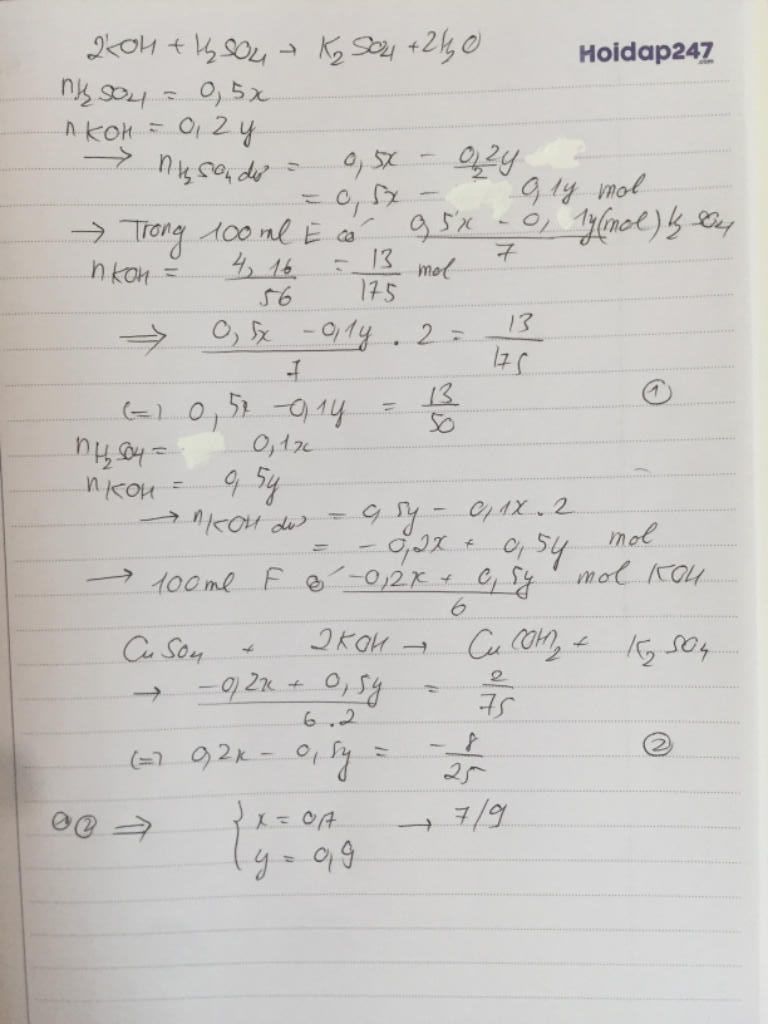 2KOH + H₂SO₄ → K₂SO₄ + 2H₂O
Hoidap247.com
nH₂SO₄ = 0,5x
nKOH = 0,2y
→ nH₂SO₄ dư = 0,5x - 0,2y/2
= 0,5x - 0,1y mol
→ Trong 100ml E có (0,5x - 0,1y)/7 (mol) H₂SO₄
nKOH = 4,16/56 = 13/175 mol
⇒ (0,5x - 0,1y)/7 . 2 = 13/175
(=) 0,5x - 0,1y = 13/50 ①
nH₂SO₄ = 0,1x
nKOH = 0,5y
→ nKOH dư = 0,5y - 0,1x.2
= -0,2x + 0,5y mol
→ 100ml F có (-0,2x + 0,5y)/6 mol KOH
CuSO₄ + 2KOH → Cu(OH)₂ + K₂SO₄
→ (-0,2x + 0,5y)/(6.2) = 2/75
(=) 0,2x - 0,5y = -8/25 ②
①② ⇒ { x = 0,7 → 7/9
y = 0,9